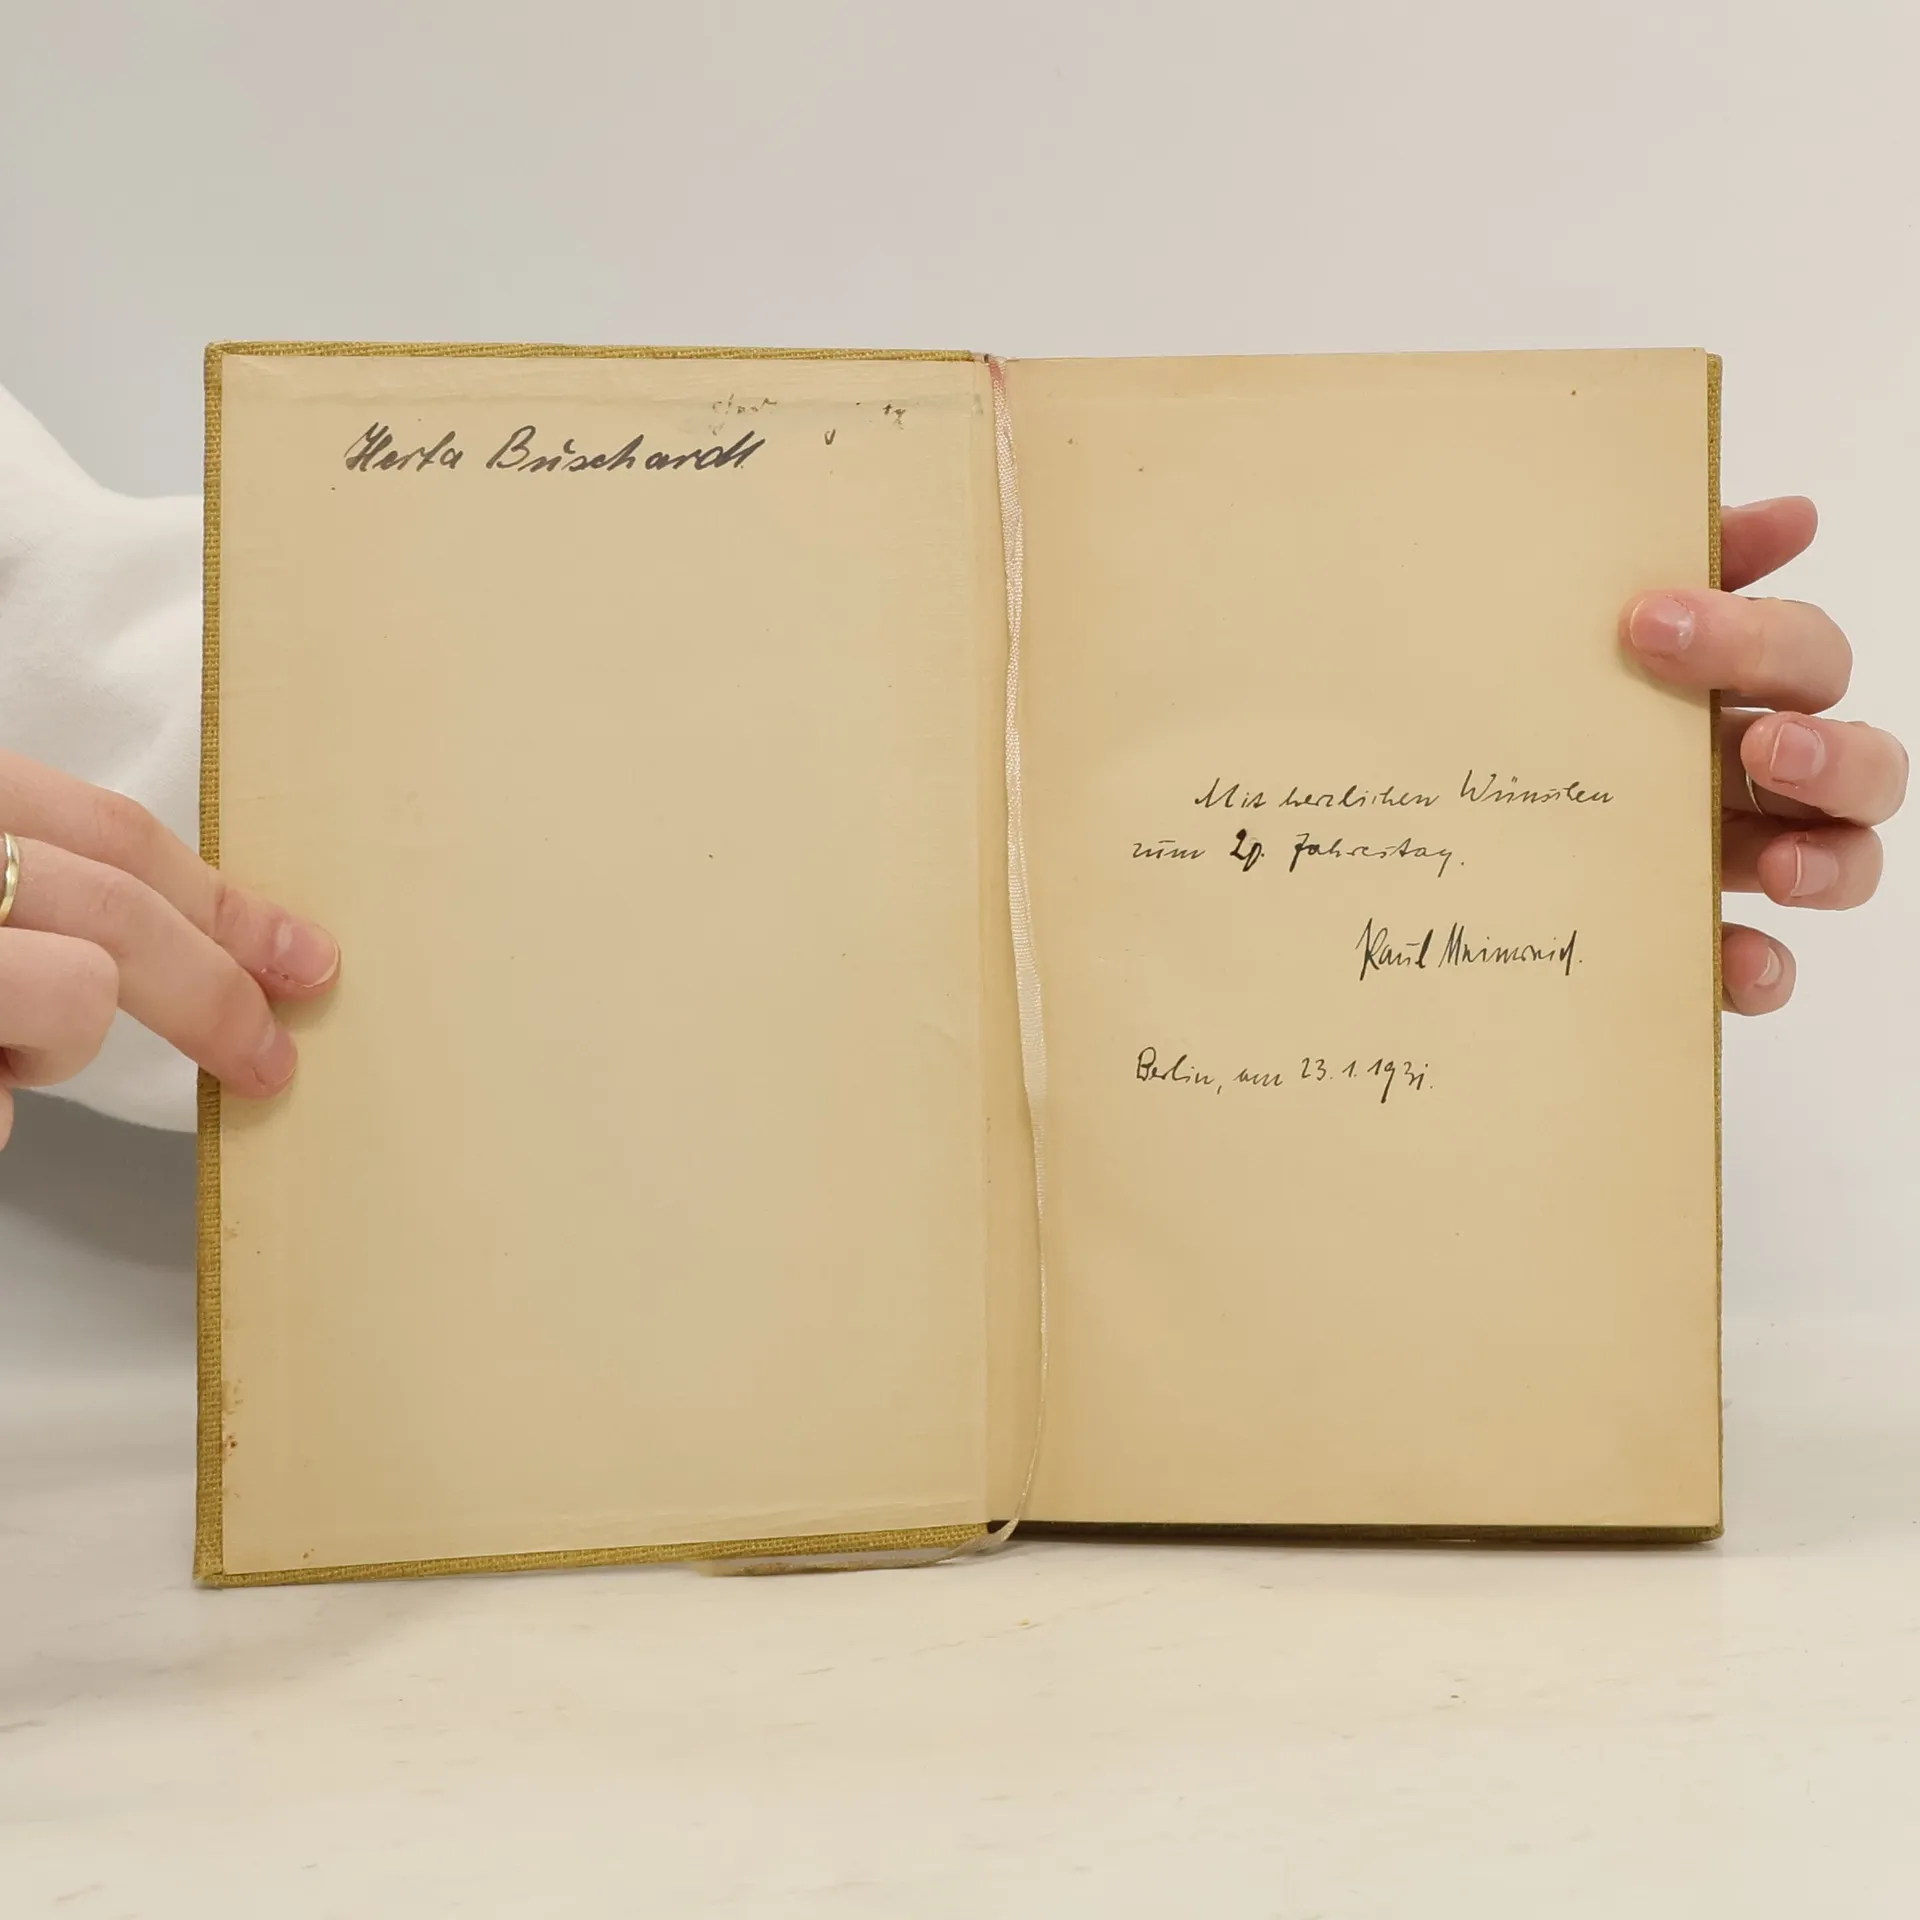 Herta Buschardt
Mit herzlichen Wünschen
zum 20. Jahrestag.
Berlin, am 23. 1. 1931.